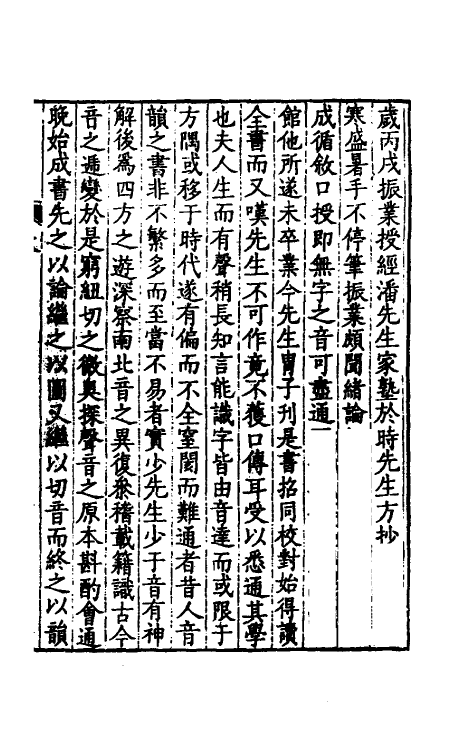 歲丙戌振業授經潘先生家塾於時先生方抄
寒盛暑手不停筆振業頗聞緒論
成循敘口授即無字之音可盡通
館他所遂未卒業今先生胄子刊是書招同校對始得讀
全書而又嘆先生不可作竟不獲口傳耳受以悉通其學
也夫人生而有聲稍長知言能識字皆由音達而或限于
方隅或移于時代遂有偏而不全窒閡而難通者昔人音
韻之書非不繁多而至當不易者實少先生少于音有神
解後為四方之遊深察南北音之異復叅稽載籍識古今
音之遞變於是窮紐切之微奧探聲音之原本斟酌會通
晚始成書先之以論繼之以圖又繼以切音而終之以韻